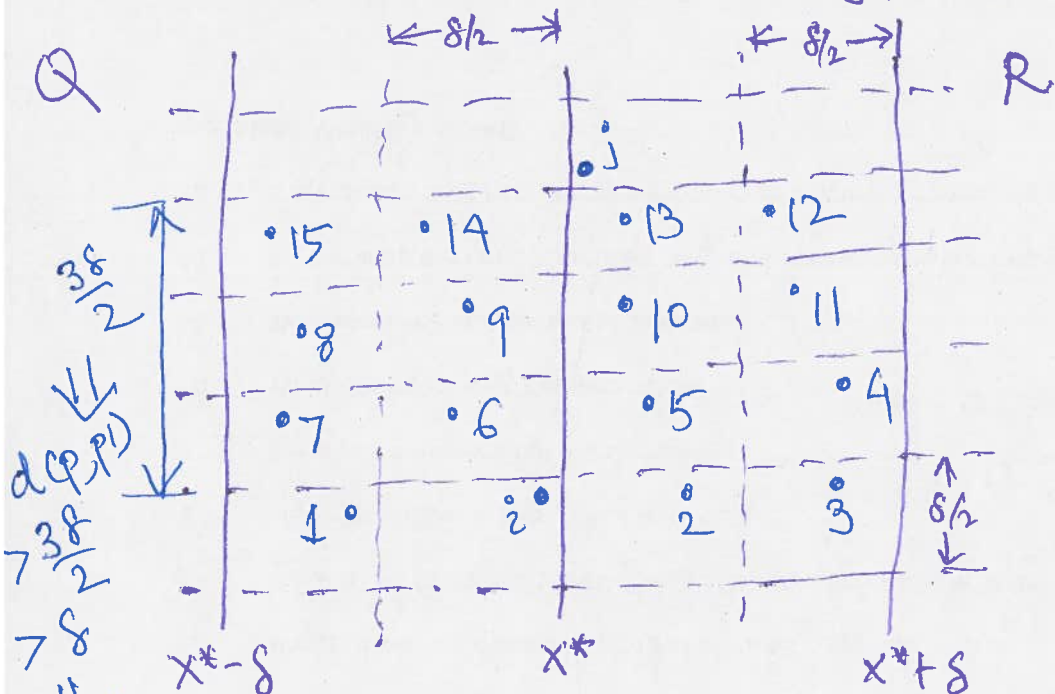 δ/2 δ/2
Q R
j
15 14 13 12
3δ/2
8 9 10 11
7 6 5 4
d(p,p')
1 i 2 3 δ/2
> 3δ/2
> δ
x*-δ x* x*+δ